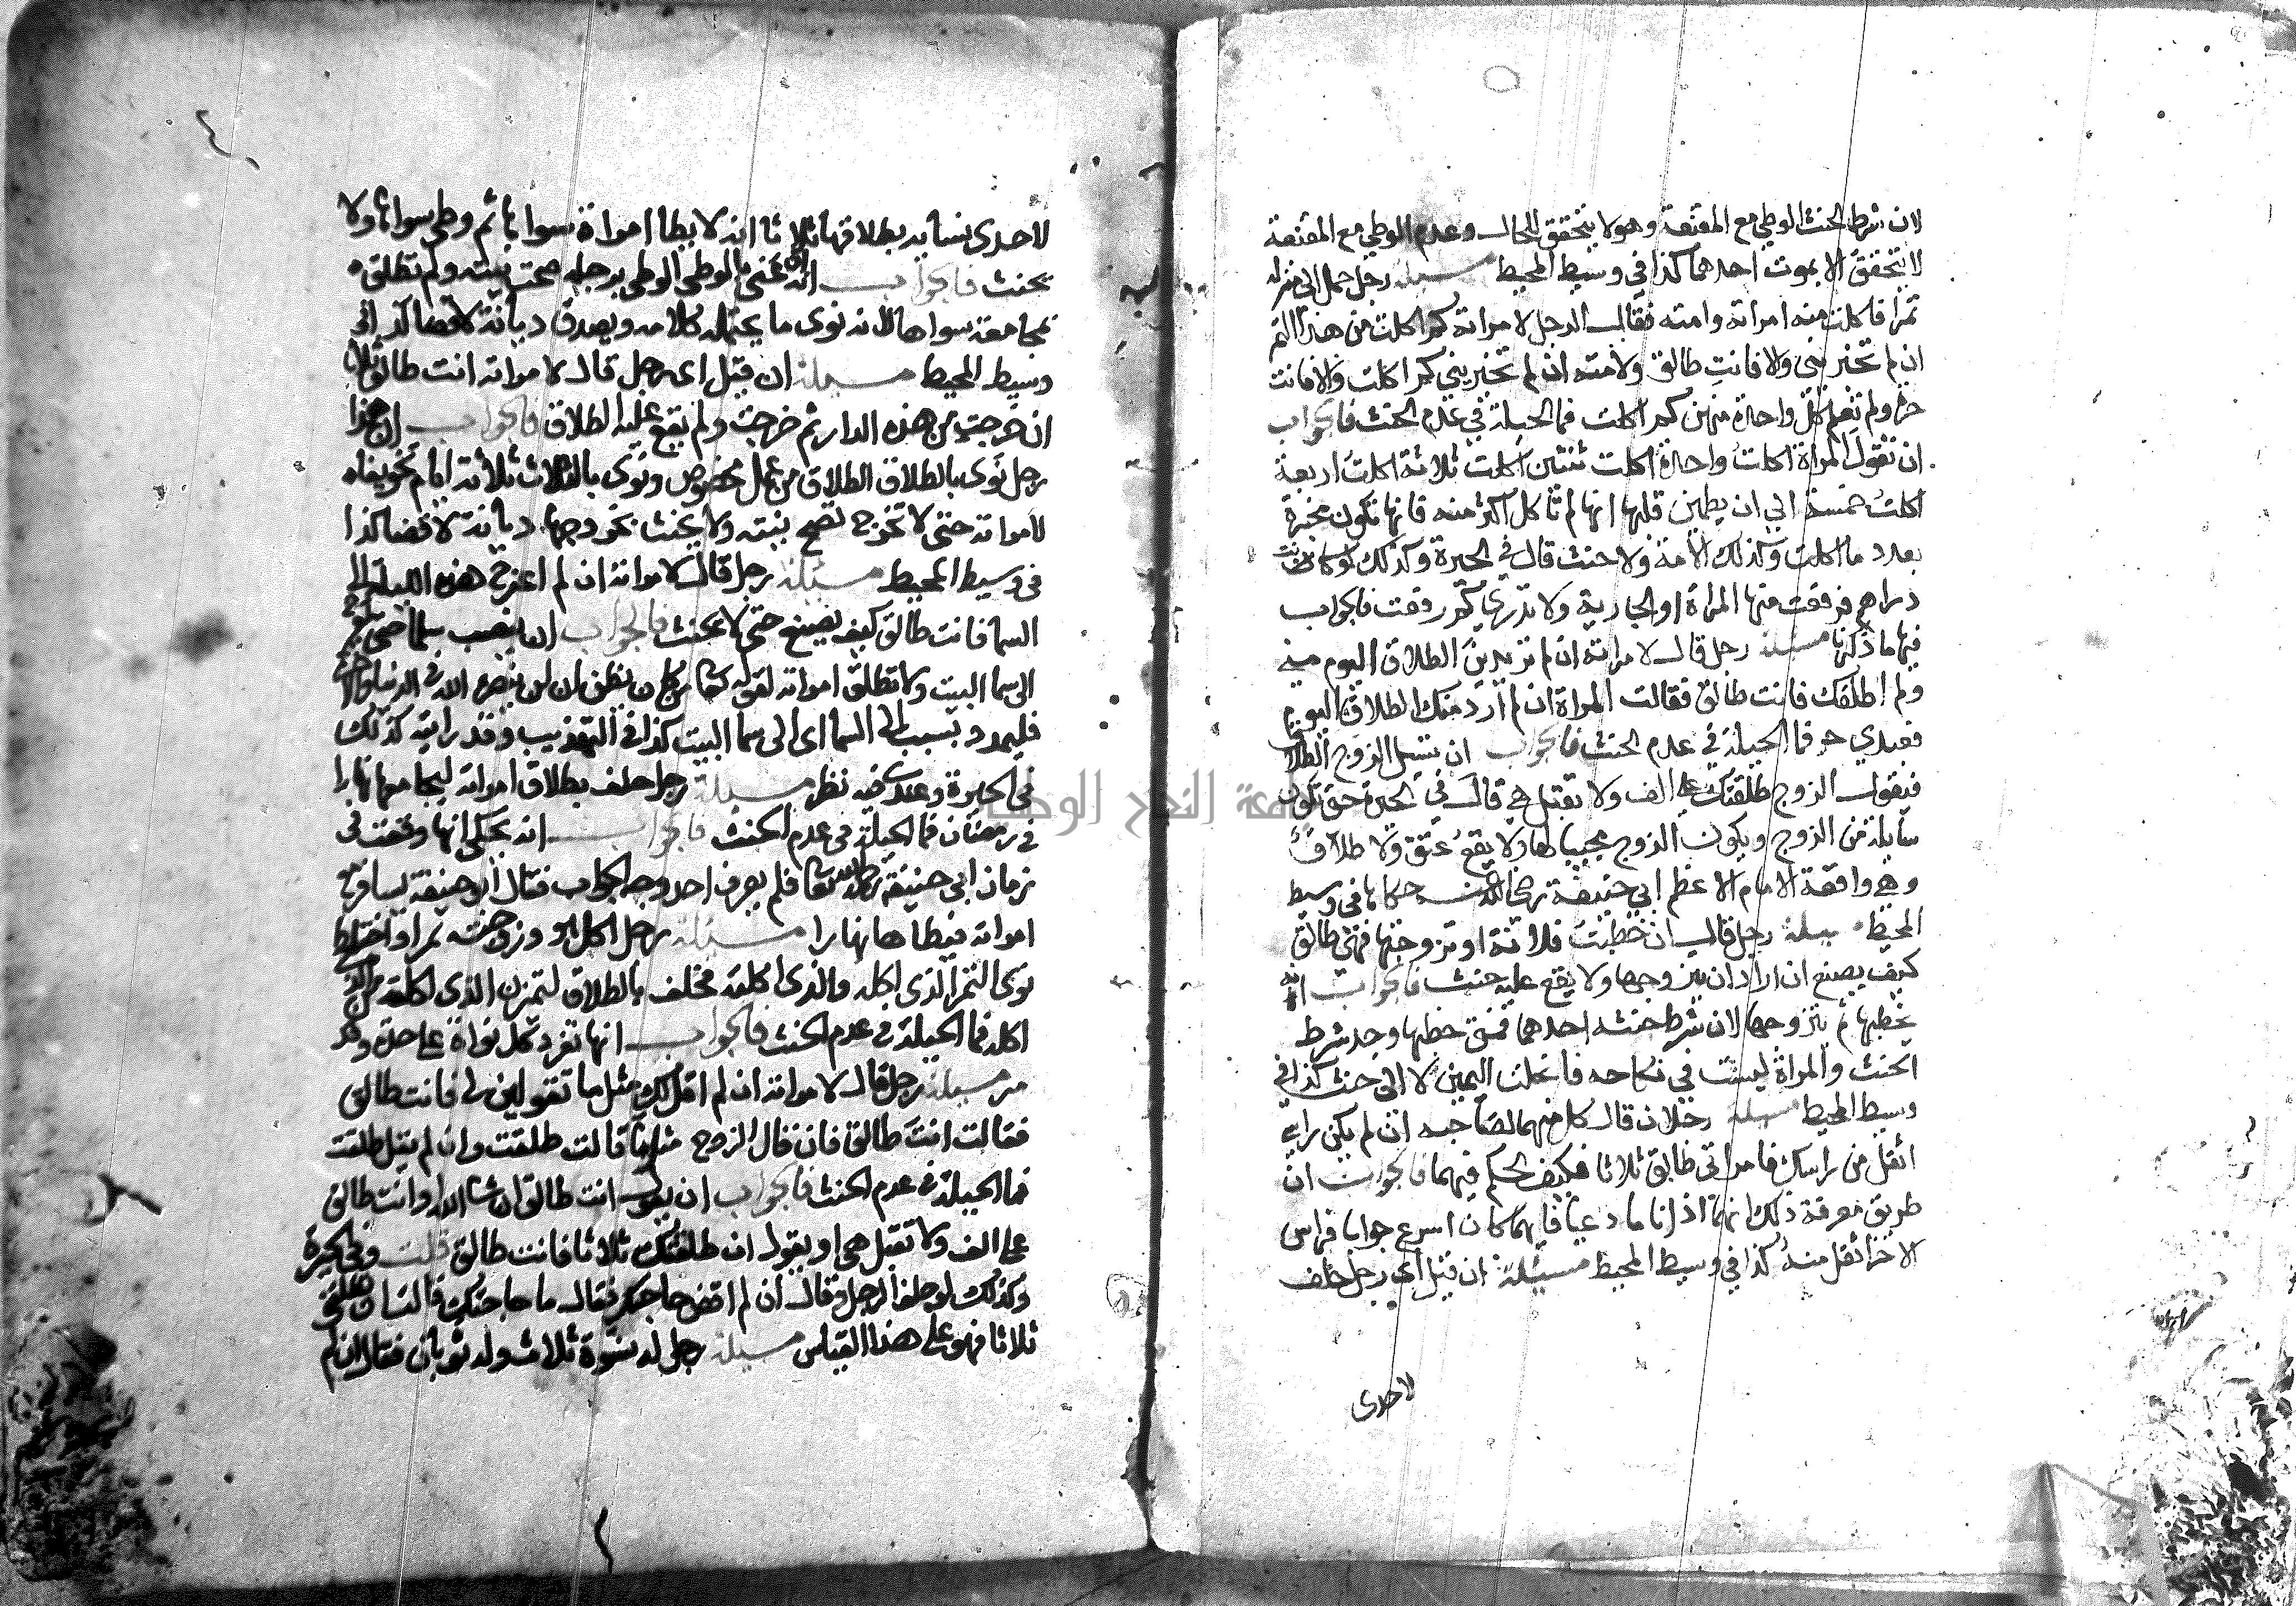 لان شرط الحنث الوطي مع المقنعة وهو لا يتحقق للحال وعدم الوطي مع المقنعة
لا يتحقق الا بموت احدهما كذا في وسيط المحيط مسيلة رجل حمل الي منزله
تمرا فاكلت منه امراته وامته فقال الرجل لامراته كم اكلت من هذا التمر
ان لم تخبريني والا فانت طالق ولامته ان لم تخبريني كم اكلت والا فانت
حرة ولم تعلم كل واحدة منهن كم اكلت فما الحيلة في عدم الحنث فالجواب
ان تقول المراة اكلت واحدة اكلت ثنتين اكلت ثلاثة اكلت اربعة
اكلت خمسة الي ان يطمين قلبها انها لم تاكل اكثر منه فانها تكون مخبرة
بعدد ما اكلت وكذلك الامة ولا حنث قال في الحيرة وكذلك لو كانت
دراهم فرفعت منها المراة او الجارية ولا تدري كم رفعت فالجواب
فيها ما ذكرنا مسيلة رجل قال لامراته ان لم تريدين الطلاق اليوم مني
ولم اطلقك فانت طالق فقالت المراة ان لم ارد منك الطلاق اليوم
فعبدي حر فما الحيلة في عدم الحنث فالجواب ان تسيل الزوج الطلاق
فيقول الزوج طلقتك علي الف ولا تقبل هي قال في الحيرة حتي تكون
سايلة من الزوج ويكون الزوج مجيبا لها ولا يقع عتق ولا طلاق
وهي واقعة الامام الاعظم ابي حنيفة رضي الله عنه حكاها في وسيط
المحيط مسيلة رجل قال ان خطبت فلانة او تزوجتها فهي طالق
كيف يصنع ان اراد ان يتزوجها ولا يقع عليه حنث فالجواب انه
يخطبها ثم يتزوجها لان شرط حنثه احدهما فمتي خطبها وجد شرط
الحنث والمراة ليست في نكاحه فانحلت اليمين لا الي حنث كذا في
وسيط المحيط مسيلة رجلان قال كل منهما لصاحبه ان لم يكن راسي
اثقل من راسك فامراتي طالق ثلاثا فكيف الحكم فيهما فالجواب ان
طريق معرفة ذلك انهما اذا ناما دعيا فايهما كان اسرع جوابا فراس
الاخر اثقل منه كذا في وسيط المحيط مسيلة ان قيل اي رجل حلف
لاحدى
لاحدى نسايه بطلاقها ثلاثا انه لا يطا امراة سواها ثم وطي سواها ولا
يحنث فالجواب انه عنى بالوطي الوطي برجله صحت نيته ولم تطلق
بمجامعة سواها لانه نوى ما يحتمله كلامه ويصدق ديانة لا قضا كذا في
وسيط المحيط مسيلة ان قيل اي رجل قال لامراته انت طالق ثلاثا
ان خرجت من هذه الدار ثم خرجت ولم يقع عليه الطلاق فالجواب ان هذا
رجل نوى بالطلاق الطلاق من عمل مخصوص ونوى بالثلاث ثلاثة ايام تخويفا
لامراته حتى لا تخرج تصح نيته ولا يحنث بخروجها ديانة لا قضا كذا
في وسيط المحيط مسيلة رجل قال لامراته ان لم اعرج هذه الليلة الى
السما فانت طالق كيف يصنع حتى لا يحنث فالجواب ان ينصب سلما حتى يعرج
الى سما البيت ولا تطلق امراته لقوله تعالى من كان يظن ان لن ينصره الله في الدنيا والاخرة
فليمدد بسبب الى السما اى الى سما البيت كذا في التهذيب وقد رايته كذلك
في الحيرة وعندي فيه نظر مسيلة رجل حلف بطلاق امراته ليجامعها نهارا
في رمضان فما الحيلة في عدم الحنث فالجواب انه يحكى انها وقعت في
زمان ابي حنيفة رحمه الله تعالى فلم يعرف احد وجه الجواب فقال ابو حنيفة يسافر مع
امراته فيطاها نهارا مسيلة رجل اكل هو وزوجته تمرا واختلط
نوى التمر الذي اكله والذي اكلته فحلف بالطلاق لتميزن الذي اكلته من الذي
اكله فما الحيلة في عدم الحنث فالجواب انها تفرد كل نواة على حدة وقد
مر مسيلة رجل قال لامراته ان لم اقل لك مثل ما تقولين لى فانت طالق
فقالت انت طالق فان قال الزوج مثل ما قالت طلقت وان لم يقل طلقت
فما الحيلة في عدم الحنث فالجواب ان يقول انت طالق ان شا الله او انت طالق
على الف ولا تقبل هى او يقول ان طلقتك ثلاثا فانت طالق قلت وفي الحيرة
وكذلك لو حلف الرجل وقال ان لم اقض حاجتك فقال ما حاجتك قالت ان تطلقني
ثلاثا فهو على هذا القياس مسيلة رجل له نسوة ثلاث وله ثوبان فقال ان لم
جامعة النجاح الوطنية